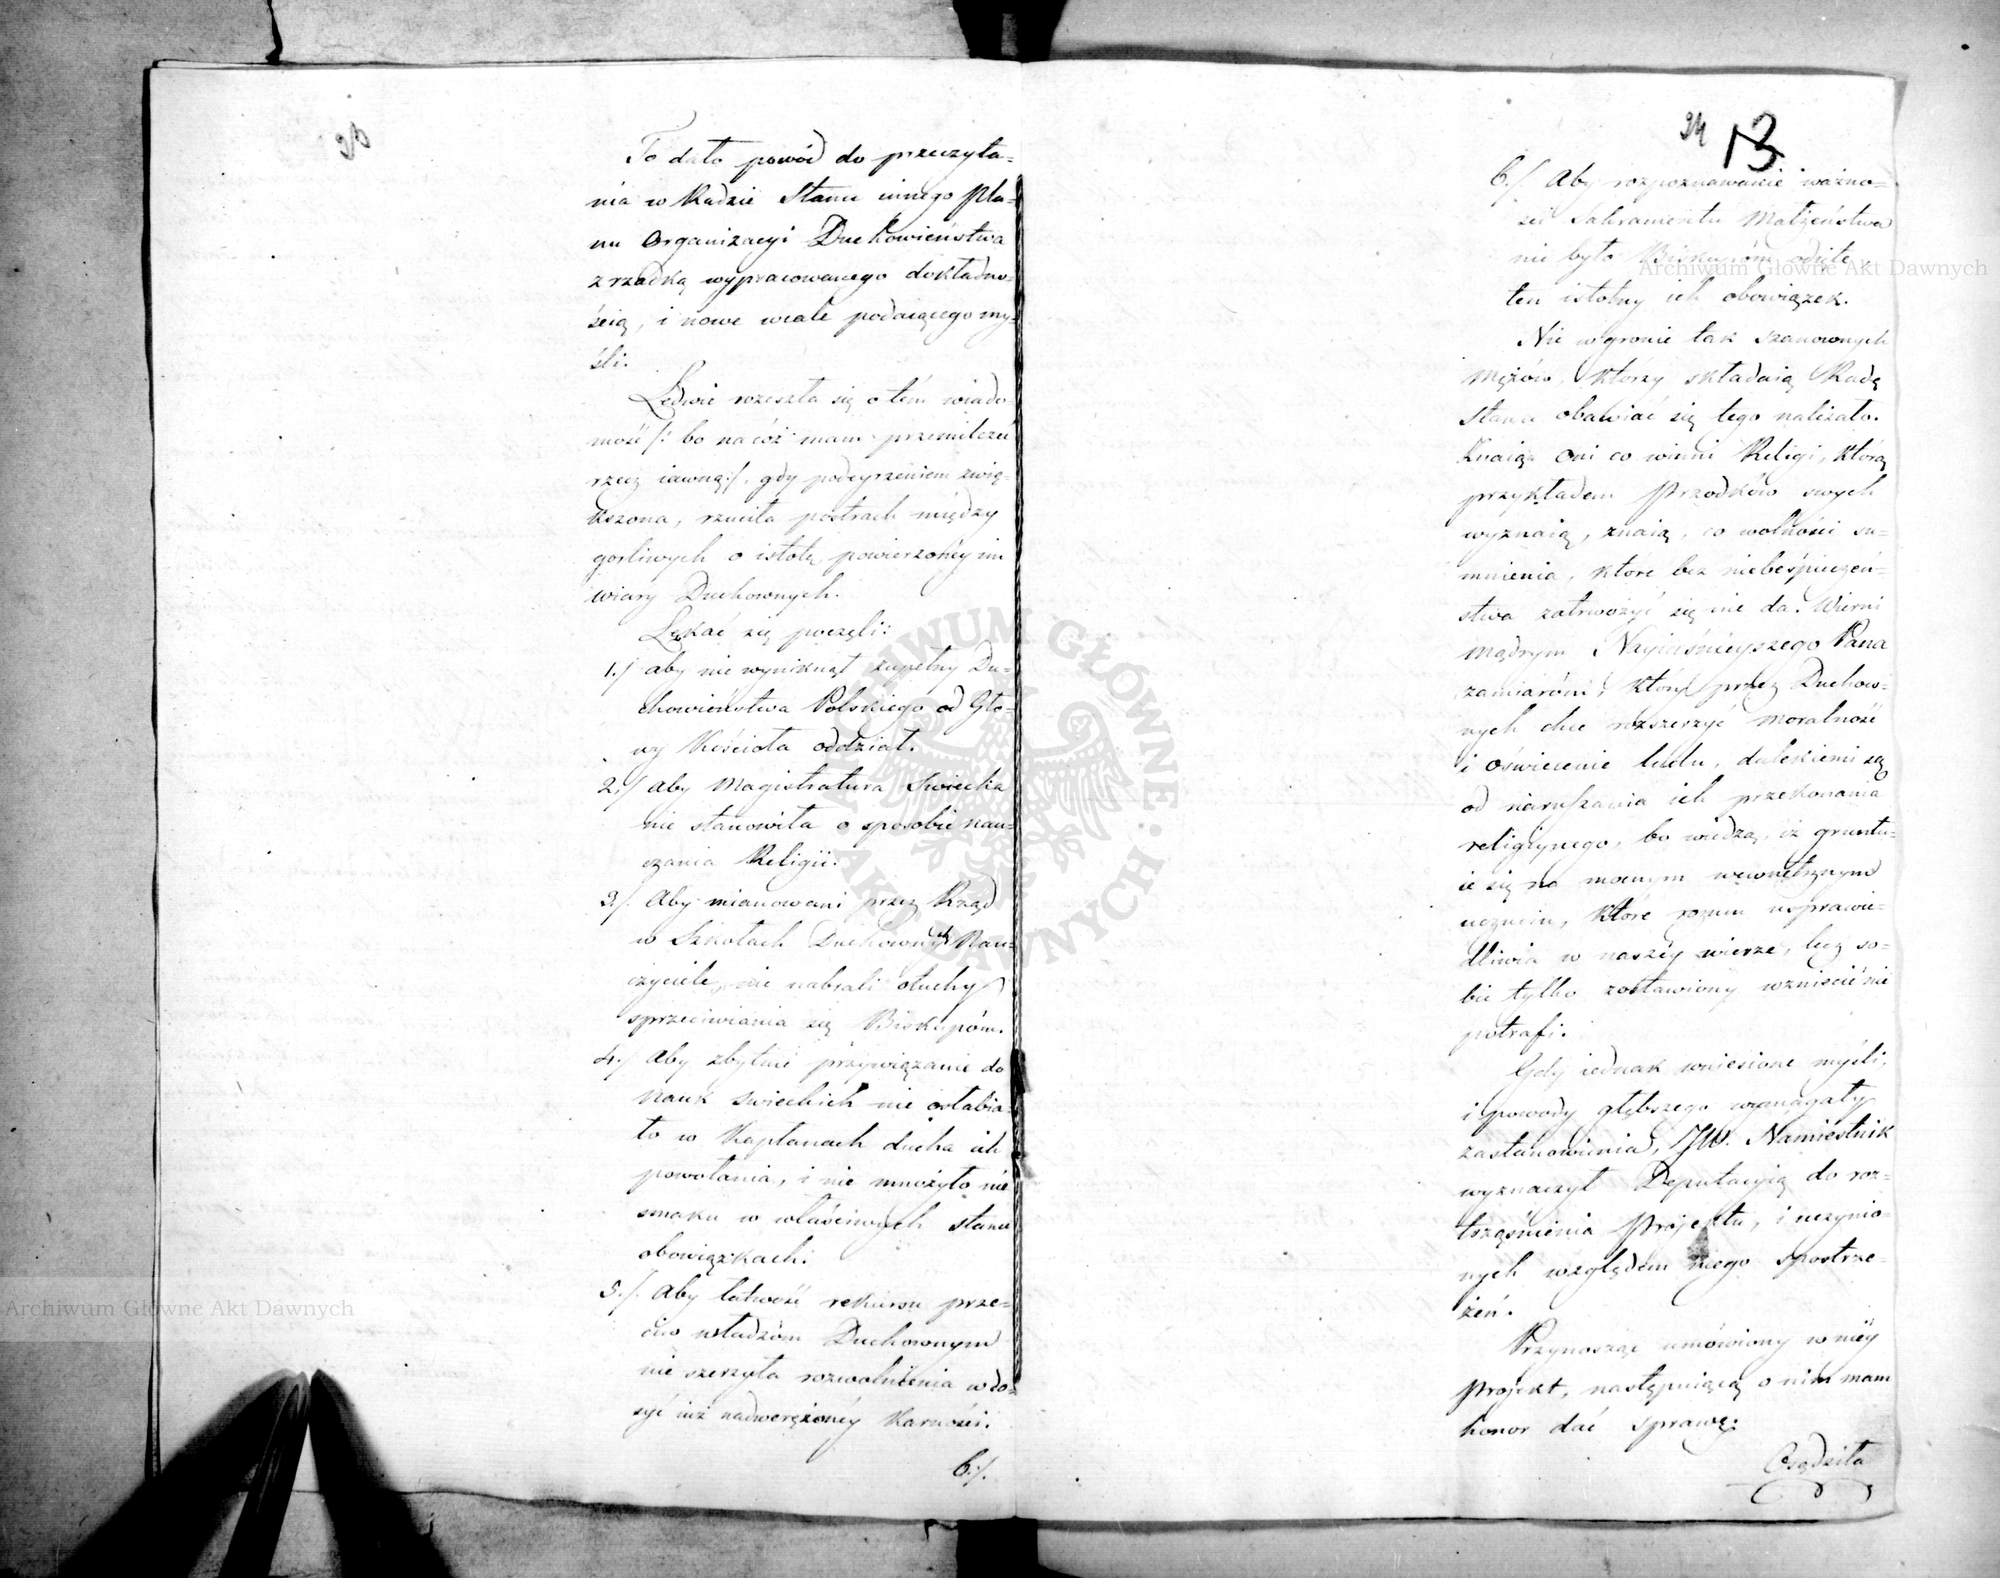 To dało powód do przeczyta=
nia w Radzie Stanu innego Pla=
nu Organizacyi Duchowieństwa
z rzadką wypracowanego dokładno=
ścią, i nowe wcale podaiącego my=
śli.
Ledwie rozeszła się o tém wiado
mość /: bo na cóż mam przemilczeć
rzecz iawną :/, gdy podeyrzeniem zwię=
kszona, rzuciła postrach między
gorliwych o istotę powierzonéy im
wiary Duchownych.
Lękać się poczęli:
1./ aby nie wyniknął zupełny Du=
chowieństwa Polskiego od Gło=
wy Kościoła oddział.
2./ Aby Magistratura Swiecka
nie stanowiła o sposobie nau=
czania Religii.
3./ Aby mianowani przez Rząd
w Szkołach Duchownych Nau=
czyciele, nie nabrali otuchy
sprzeciwiania się Biskupóm.
4./ Aby zbytnie przywiązanie do
Nauk swieckich nie osłabia=
ło w Kapłanach ducha ich
powołania, i nie mnożyło nie
smaku w właściwych stanu
obowiązkach.
5./ Aby łatwość rekursu prze=
ciw władzóm Duchownym
nie szerzyła rozwolnienia w do=
syć iuż nadwerężonéy Karności.
6./.
24 13
6./ Aby rozpoznawanie ważno=
ści Sakramentu Małżeństwa
nie było Biskupóm odięte,
ten istotny ich obowiązek.
Nie w gronie tak szanownych
Mężów, którzy składaią Radę
Stanu obawiać się tego należało.
Znaią oni co winni Religi, którą
przykładem Przodków swych
wyznaią, znaią, co wolności su=
mnienia, które bez niebéśpieczeń=
stwa zatrwożyć się nie da. Wierni
mądrym Nayiaśnieyszego Pana
zamiaróm, który przez Duchow=
nych chce rozszerzyć moralność
i oświecenie ludu, dalekiemi są
od naruszania ich przekonania
religiynego, bo wiedzą, iż gruntu=
ie się na mocnym wewnętrznym
uczuciu, które rozum usprawie=
dliwia w naszéy wierze, lecz so=
bie tylko zostawiony wznieść nie
potrafi.
Gdy iednak wniesione myśli,
i powody głębszego wymagały
zastanowienia, JW. Namiestnik
wyznaczył Deputacyią do roz=
trząśnienia Projektu, i uczynio=
nych względem niego spostrze=
żeń.
Przynosząc umówiony w niéy
Projekt, następuiącą o nim mam
honor dać sprawę:
Osądziła
Archiwum Główne Akt Dawnych
Archiwum Główne Akt Dawnych
ARCHIWUM GŁÓWNE AKT DAWNYCH